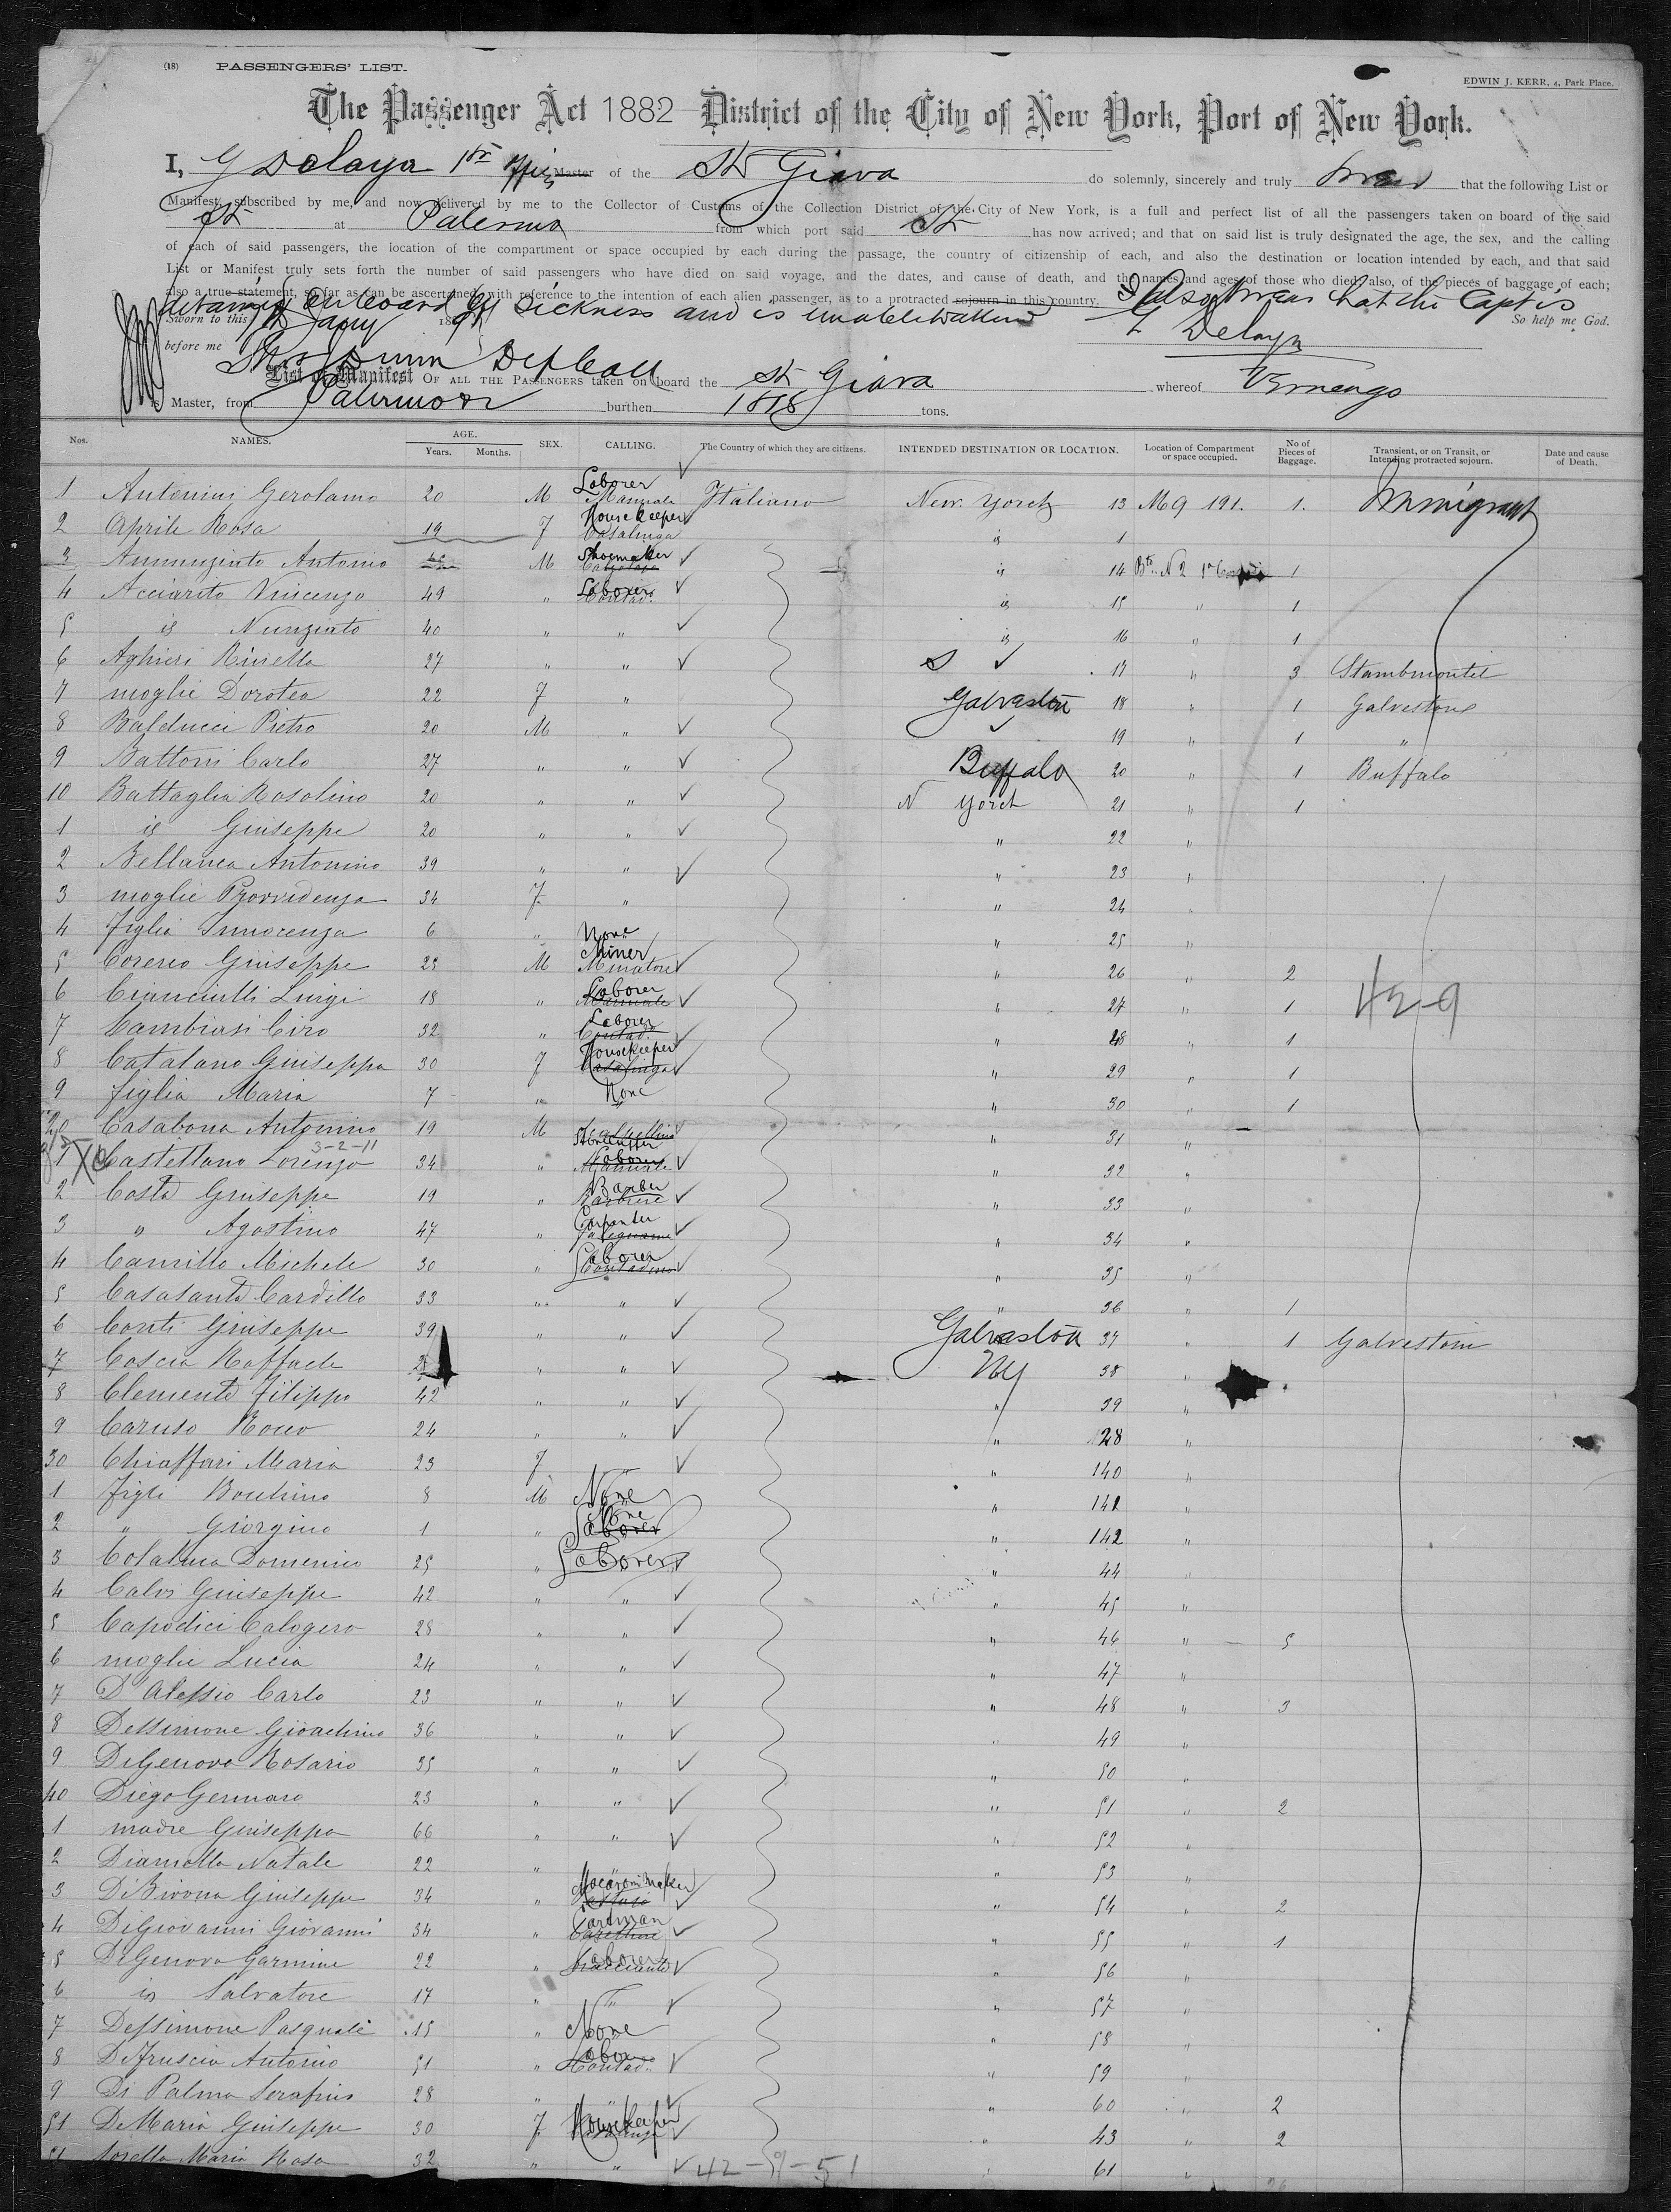 (18) PASSENGERS' LIST.
EDWIN J. KERR, 4, Park Place.
The Passenger Act 1882 District of the City of New York, Port of New York.
I, G Delaya 1st Master of the St Giava do solemnly, sincerely and truly Swear that the following List or
Manifest, subscribed by me, and now delivered by me to the Collector of Customs of the Collection District of the City of New York, is a full and perfect list of all the passengers taken on board of the said
St at Palermo from which port said St has now arrived; and that on said list is truly designated the age, the sex, and the calling
of each of said passengers, the location of the compartment or space occupied by each during the passage, the country of citizenship of each, and also the destination or location intended by each, and that said
List or Manifest truly sets forth the number of said passengers who have died on said voyage, and the dates, and cause of death, and the names and ages of those who died; also, of the pieces of baggage of each;
also a true statement, so far as can be ascertained with reference to the intention of each alien passenger, as to a protracted sojourn in this country. I also Swear that the Capt is
detained on board by sickness and is unable to attend
Sworn to this Jany 189 So help me God.
before me G Delaya
List or Manifest OF ALL THE PASSENGERS taken on board the St Giava whereof Vernengo
is Master, from Palermo burthen tons.
Nos. NAMES. AGE. Years. Months. SEX. CALLING. The Country of which they are citizens. INTENDED DESTINATION OR LOCATION. Location of Compartment or space occupied. No of Pieces of Baggage. Transient, or on Transit, or Intending protracted sojourn. Date and cause of Death.
1 Antonini Gerolamo 20 M Laborer Manuale Italiano New. Yorch 13 M9 191. 1. Immigrant
2 Aprile Rosa 19 F Housekeeper Casalinga is 1
3 Annunziato Antonio M Shoemaker is 14 1
4 Acciarito Vincenzo 49 " Laborer Contad. is 15 " 1
5 is Nunziato 40 " " is 16 " 1
6 Aghieri Rinella 27 " " S 17 " 3
7 moglie Dorotea 22 F " Galveston 18 " 1 Galvestone
8 Balducci Pietro 20 M " 19 " 1 "
9 Battoni Carlo 27 " " Buffalo 20 " 1 Buffalo
10 Battaglia Rosolino 20 " " N Yorch 21 " 1
1 is Giuseppe 20 " " " 22 "
2 Bellanca Antonino 39 " " " 23 "
3 moglie Provvidenza 34 F " " 24 "
4 figlia Innocenza 6 " None " 25 "
5 Corereo Giuseppe 25 M Miner Minatore " 26 " 2
6 Cianciulli Luigi 18 " Laborer Manuale " 27 " 1
7 Cambiasi Ciro 32 " Laborer Contad. " 28 " 1
8 Catalano Giuseppa 30 F Housekeeper Casalinga " 29 " 1
9 figlia Maria 7 " None " 30 " 1
20 Casabona Antonino 19 M Stonecutter " 31 "
3-2-11
1 Castellano Lorenzo 34 " Laborer Manuale " 32 "
2 Costa Giuseppe 19 " Barber Barbiere " 33 "
3 " Agostino 47 " Carpenter Falegname " 34 "
4 Camillo Michele 30 " Laborer Contadino " 35 "
5 Casasanta Cardillo 33 " " " 36 " 1
6 Conti Giuseppe 39 " " Galveston 37 " 1 Galvestone
7 Coscia Raffaele " " NY 38 "
8 Clemente Filippo 42 " " " 39 "
9 Caruso Rocco 24 " " " 128 "
30 Chiaffari Maria 23 F " " 140 "
1 figli Boschino 8 M None " 141 "
2 " Giorgino 1 " None Laborer " 142 "
3 Colaluca Domenico 25 " Laborer " 44 "
4 Calvo Giuseppe 42 " " " 45 "
5 Capodici Calogero 28 " " " 46 " 5
6 moglie Lucia 24 " " " 47 "
7 D'Alessio Carlo 23 " " " 48 " 3
8 Dessimone Gioachino 36 " " " 49 "
9 DeGenova Rosario 35 " " " 50 "
40 Diego Gennaro 23 " " " 51 " 2
1 madre Giuseppa 66 " " " 52 "
2 Diamella Natale 22 " " " 53 "
3 DiBivona Giuseppe 34 " Macaroni maker " 54 " 2
4 DiGiovanni Giovanni 34 " Cartman " 55 " 1
5 DeGenova Garmine 22 " Laborer " 56 "
6 is Salvatore 17 " " " 57 "
7 Dessimone Pasquale 15 " None " 58 "
8 DiFruscia Antonio 51 " Laborer Contad. " 59 "
9 Di Palma Serafino 28 " " " 60 " 2
51 DeMaria Giuseppe 30 F Housekeeper " 43 " 2
51 sorella Maria Rosa 32 " " " 61 "
42-9-51